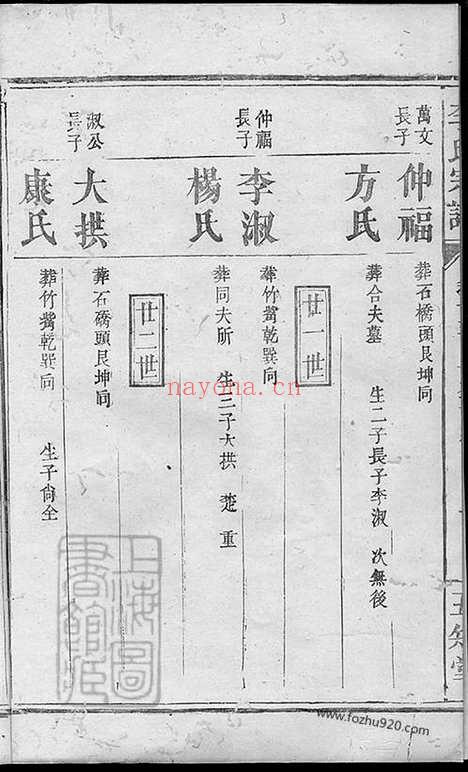 李氏宗譜
萬文長子
仲福
葬石橋頭艮坤向
方氏
葬合夫墓 生二子長子李淑 次無後
廿一世
仲福長子
李淑
葬竹嶲乾巽向
楊氏
葬同夫所 生三子大拱 楚 重
廿二世
淑公長子
大拱
葬石橋頭艮坤向
康氏
葬竹嶲乾巽向 生子尙全
上海圖書館藏
nayona.cn
www.fozhu920.com